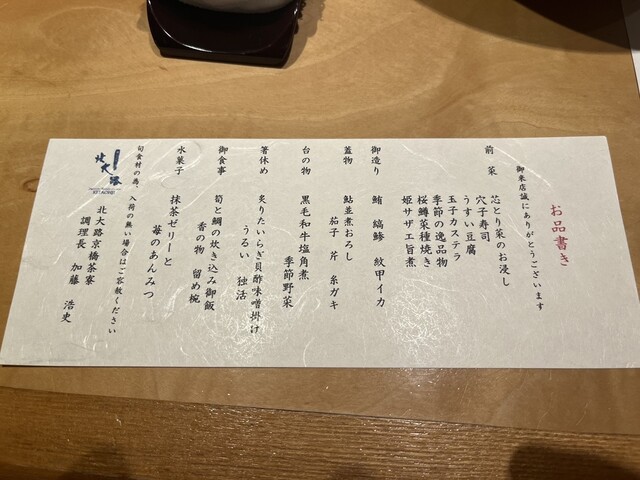 お品書き
御来店誠にありがとうございます
前菜
芯とり菜のお浸し
穴子寿司
うすい豆腐
玉子カステラ
季節の逸品物
桜鱒菜種焼き
姫サザエ旨煮
御造り
鮪 縞鯵 紋甲イカ
蓋物
鮎並煮おろし
茄子 芹 糸ガキ
台の物
黒毛和牛塩角煮
季節野菜
箸休め
炙りたいらぎ貝酢味噌掛け
うるい 独活
御食事
筍と鯛の炊き込み御飯
香の物 留め椀
水菓子
抹茶ゼリーと
苺のあんみつ
旬食材の為、入荷の無い場合はご容赦ください
北大路京橋茶寮
調理長 加藤 浩史
北大路